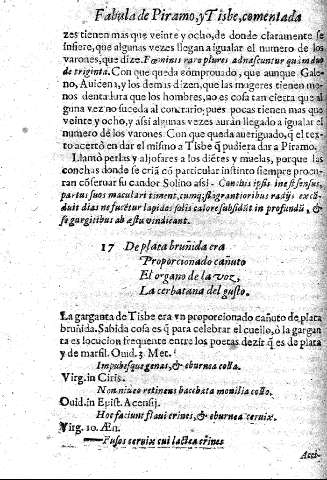 Fabula de Piramo, y Tisbe, comentada
zes tienen mas que veinte y ocho, de donde claramente se
infiere, que algunas vezes llegan a igualar el numero de los
varones, que dize. Fœminis raro plures adnascuntur quàm duo
de triginta. Con que queda cõprouado, que aunque Gale-
no, Auicena, y los demas dizen, que las mugeres tienen me-
nos dentadura que los hombres, no es cosa tan cierta que al
guna vez no suceda al contrario; pues pocas tienen mas que
veinte y ocho, y assi algunas vezes auràn llegado a igualar el
numero de los varones. Con que queda aueriguado, q̃ el tex-
to acertò en dar el mismo a Tisbe q̃ pudiera dar a Piramo.
Llamò perlas y aljofares a los diẽtes y muelas, porque las
conchas donde se criã cõ particular instinto siempre procu-
ran cõseruar su candor Solino assi. Conchis ipsis inest sensus,
partus suos maculari timent, cumq; flagrantioribus radijs exca-
duit dies ne fucẽtur lapides solis calore subsidũt in profundũ, &
se gurgitibus ab æstu vindicant.
17 De plata bruñida era
Proporcionado cañuto
El organo de la voz,
La cerbatana del gusto.
La garganta de Tisbe era vn proporcionado cañuto de plata
bruñida. Sabida cosa es q̃ para celebrar el cuello, ò la gargan
ta es locucion frequente entre los poetas dezir q̃ es de plata
y de marfil. Ouid. 3. Met.
Impubesque genas, & eburnea colla.
Virg. in Ciris.
Non niueo retinens baccata monilia collo.
Ouid. in Epist. Acensij.
Hoc faciunt flaui crines, & eburnea ceruix.
Virg. 10. Æn.
Fusos ceruix cui lactea crines